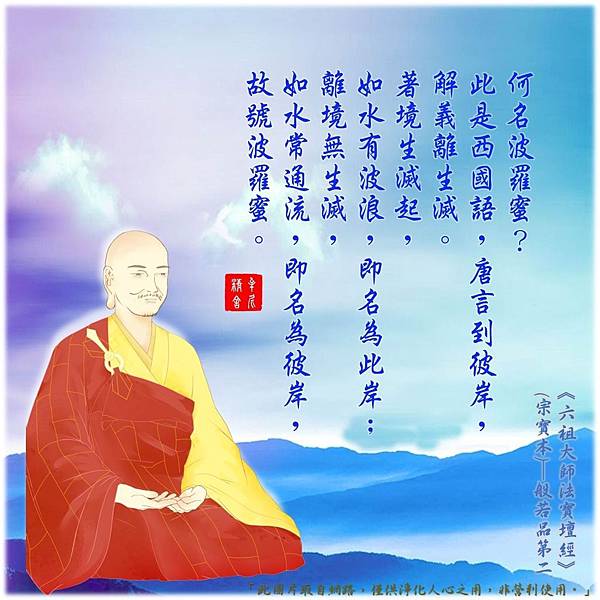 何名波羅蜜？
此是西國語，唐言到彼岸，
解義離生滅。
著境生滅起，
如水有波浪，即名為此岸；
離境無生滅，
如水常通流，即名為彼岸，
故號波羅蜜。
《六祖大師法寶壇經》
(宗寶本)—般若品第二
「此圖片取自網路，僅供淨化人心之用，非營利使用。」